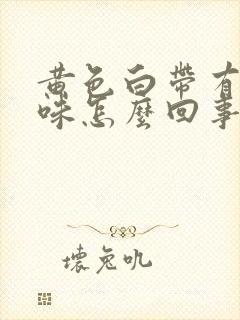 黄色白帶有
味怎麼回事
壞兔吼